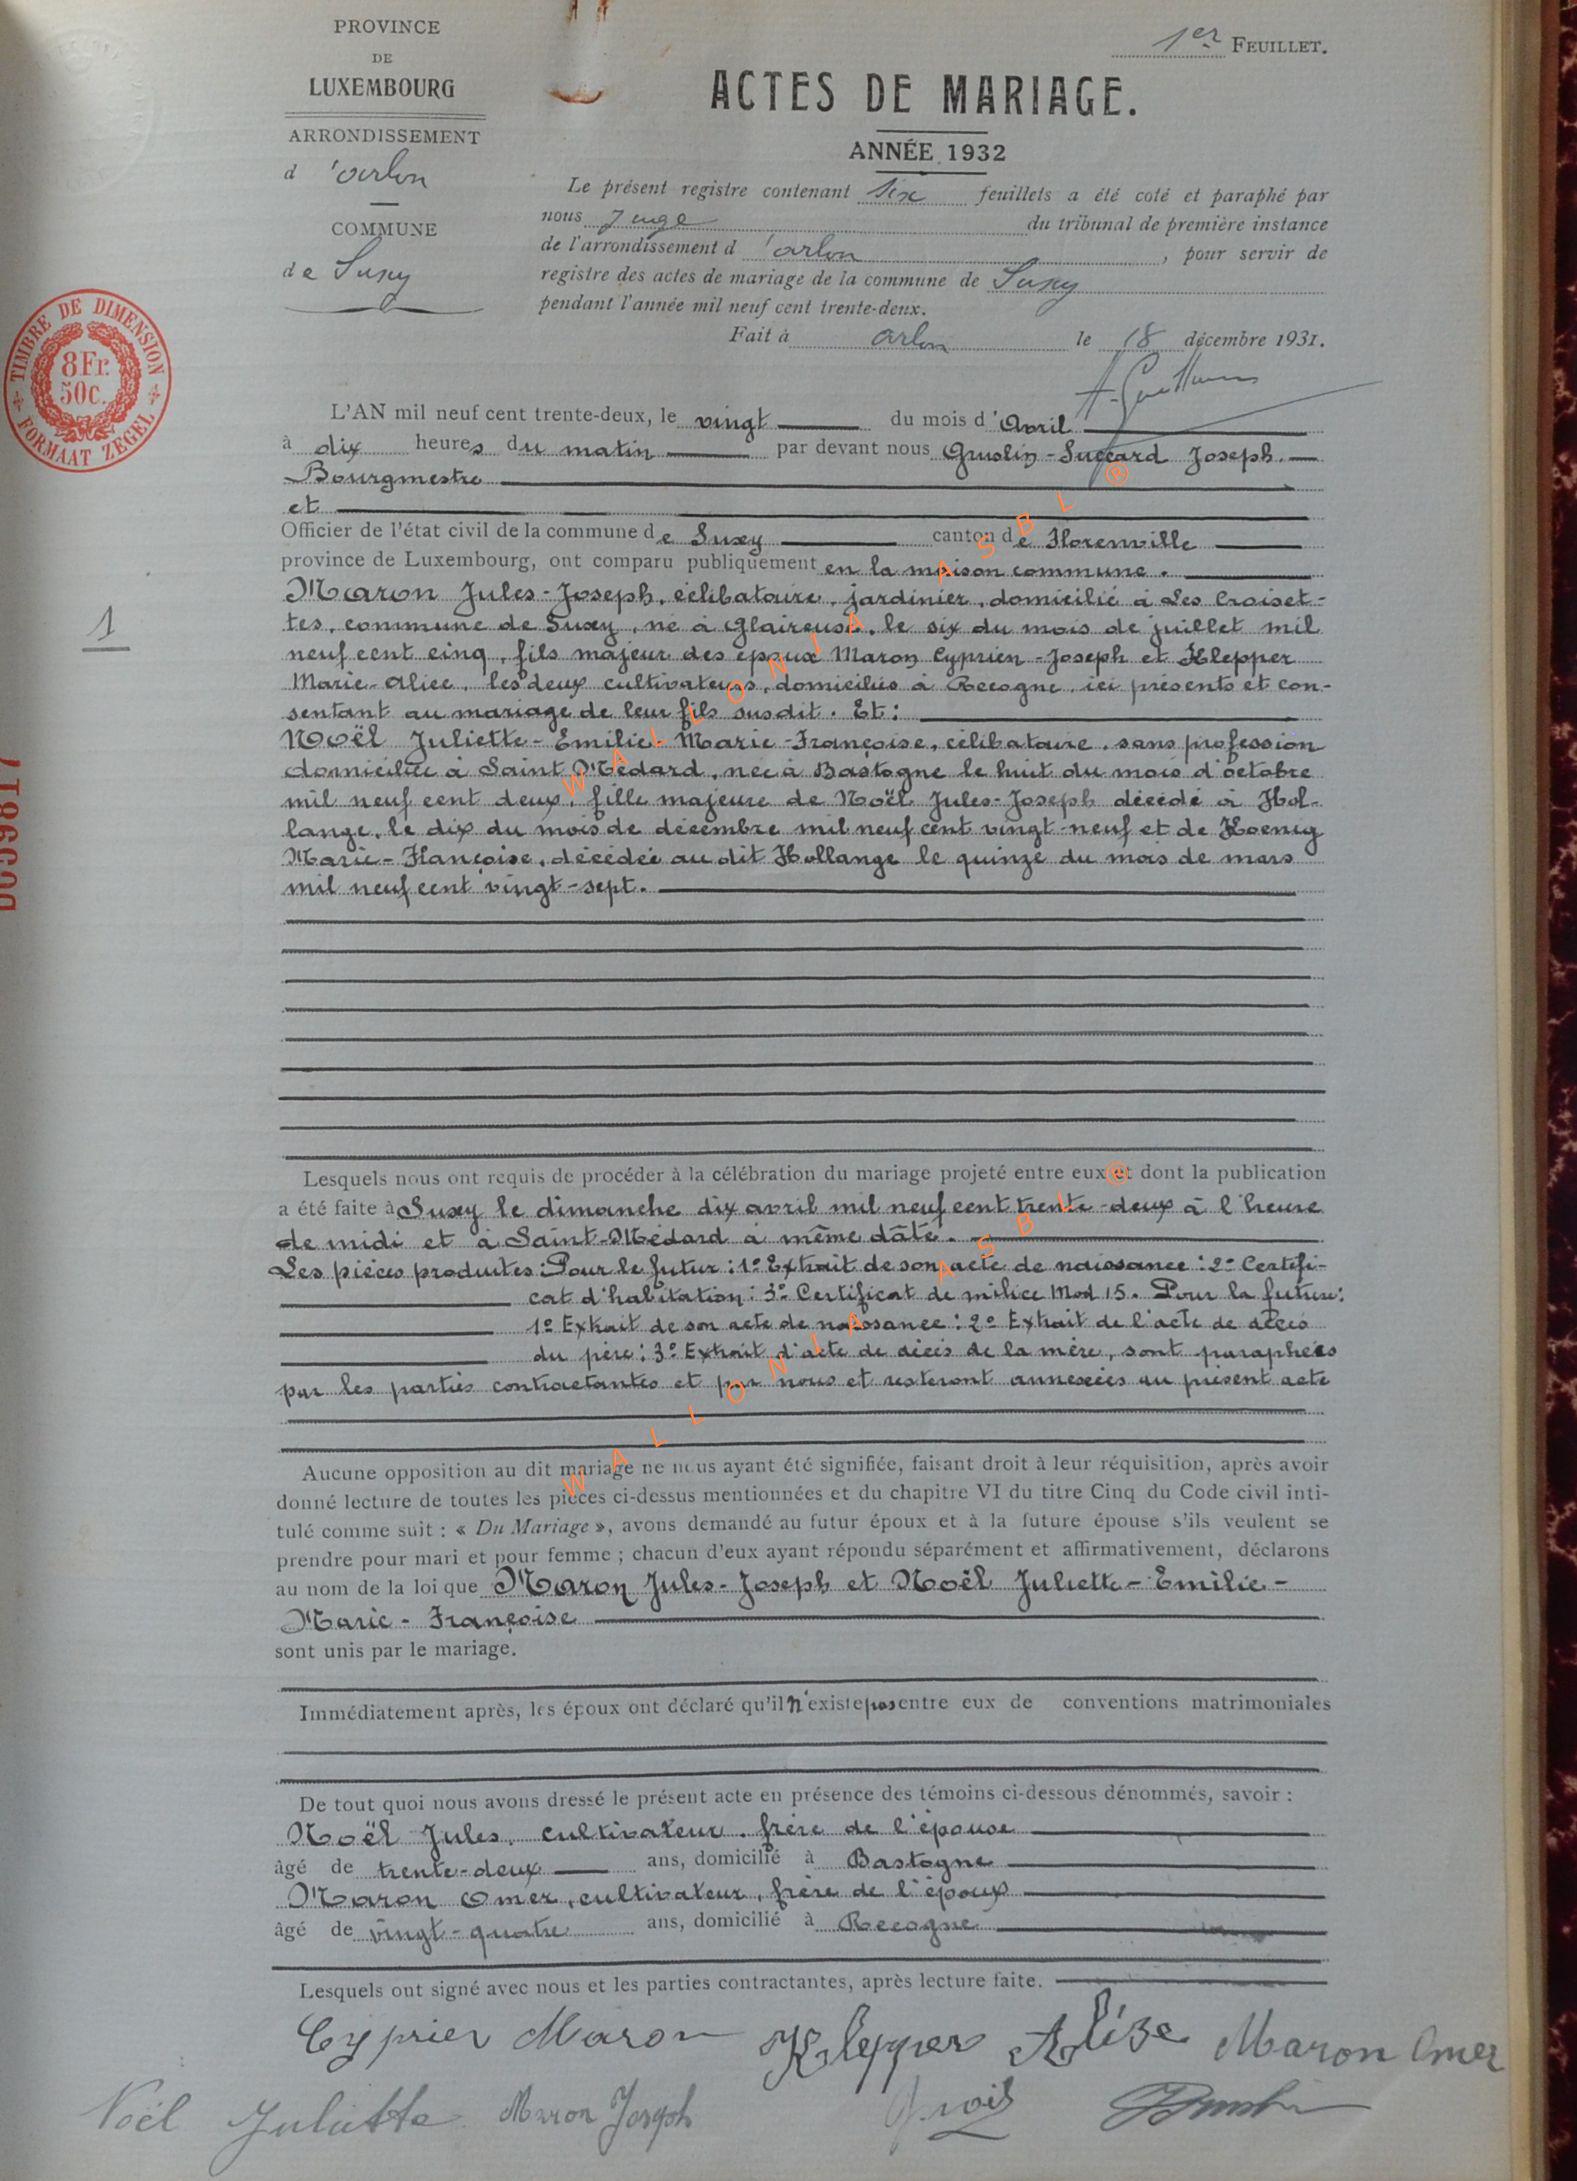 PROVINCE
DE
LUXEMBOURG
ARRONDISSEMENT
d 'Arlon
COMMUNE
de Suxy
1er FEUILLET.
ACTES DE MARIAGE.
ANNÉE 1932
Le présent registre contenant six feuillets a été coté et paraphé par
nous Juge du tribunal de première instance
de l'arrondissement d 'Arlon, pour servir de
registre des actes de mariage de la commune de Suxy
pendant l'année mil neuf cent trente-deux.
Fait à Arlon le 18 décembre 1931.
TIMBRE DE DIMENSION
8Fr.
50c.
FORMAAT ZEGEL
L'AN mil neuf cent trente-deux, le vingt du mois d'Avril
à dix heures du matin par devant nous Gruslin-Succard Joseph.
Bourgmestre
et
Officier de l'état civil de la commune de Suxy canton de Florenville
province de Luxembourg, ont comparu publiquement en la maison commune.
1
Maron Jules-Joseph, célibataire, jardinier, domicilié à Les Croiset-
tes, commune de Suxy, né à Glaireuse, le six du mois de juillet mil
neuf cent cinq, fils majeur des époux Maron Cyprien-Joseph et Klepper
Marie-Alice, les deux cultivateurs, domiciliés à Recogne, ici présents et con-
sentant au mariage de leur fils susdit. Et:
Noël Juliette-Emilie-Marie-Françoise, célibataire, sans profession
domiciliée à Saint Médard, née à Bastogne le huit du mois d'octobre
mil neuf cent deux, fille majeure de Noël Jules-Joseph décédé à Hol-
lange, le dix du mois de décembre mil neuf cent vingt-neuf et de Koenig
Marie-Françoise, décédée au dit Hollange le quinze du mois de mars
mil neuf cent vingt-sept.
Lesquels nous ont requis de procéder à la célébration du mariage projeté entre eux et dont la publication
a été faite à Suxy le dimanche dix avril mil neuf cent trente-deux à l'heure
de midi et à Saint-Médard à même dâte.
Les pièces produites: Pour le futur: 1° Extrait de son acte de naissance: 2° Certifi-
cat d'habitation: 3° Certificat de milice Mod 15. Pour la future:
1° Extrait de son acte de naissance: 2° Extrait de l'acte de décès
du père: 3° Extrait d'acte de décès de la mère, sont paraphées
par les parties contractantes et par nous et resteront annexées au présent acte
Aucune opposition au dit mariage ne nous ayant été signifiée, faisant droit à leur réquisition, après avoir
donné lecture de toutes les pièces ci-dessus mentionnées et du chapitre VI du titre Cinq du Code civil inti-
tulé comme suit : « Du Mariage », avons demandé au futur époux et à la future épouse s'ils veulent se
prendre pour mari et pour femme ; chacun d'eux ayant répondu séparément et affirmativement, déclarons
au nom de la loi que Maron Jules-Joseph et Noël Juliette-Emilie-
Marie-Françoise
sont unis par le mariage.
Immédiatement après, les époux ont déclaré qu'il n'existe pas entre eux de conventions matrimoniales
De tout quoi nous avons dressé le présent acte en présence des témoins ci-dessous dénommés, savoir :
Noël Jules, cultivateur, frère de l'épouse
âgé de trente-deux ans, domicilié à Bastogne
Maron Omer, cultivateur, frère de l'époux
âgé de vingt-quatre ans, domicilié à Recogne
Lesquels ont signé avec nous et les parties contractantes, après lecture faite.
Cyprien Maron Klepper Alise Maron Omer
Noël Juliette Maron Joseph
WALLONIA ASBL ®
WALLONIA ASBL ®